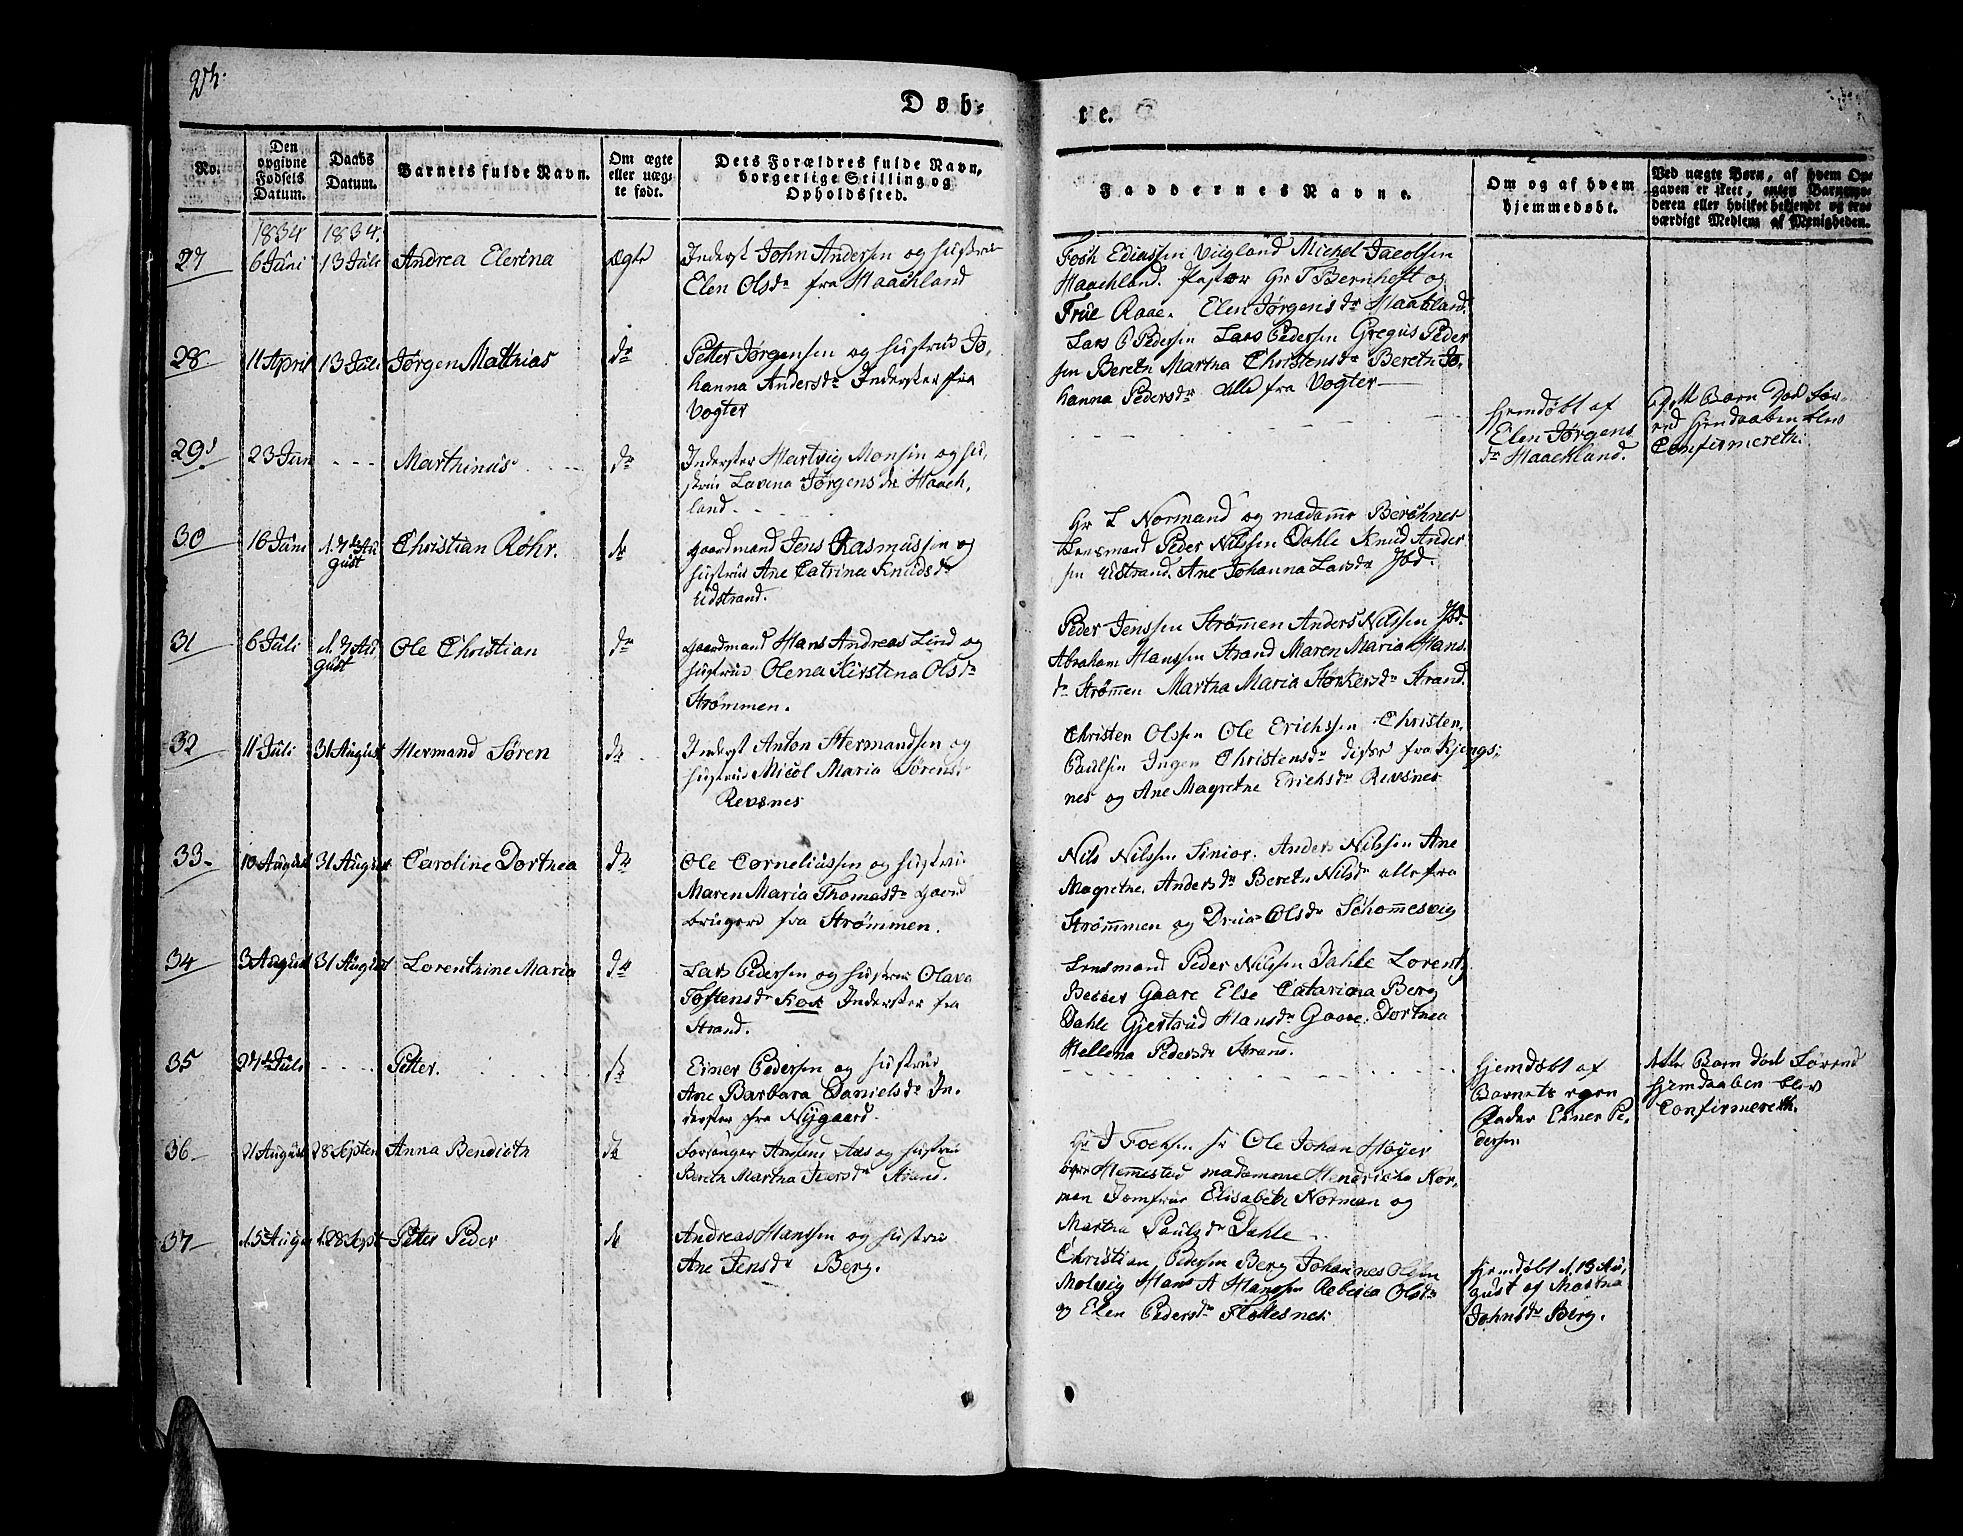 24.
Døb-
te.
No.
Den opgivne Fødsels Datum.
Daabs Datum.
Barnets fulde Navn.
Om ægte eller uægte født.
Dets Forældres fulde Navn, borgerlige Stilling og Opholdssted.
Faddernes Navne.
Om og af hvem hjemmedøbt.
Ved uægte Børn, af hvem Opgaven er skeet, enten Barnemoderen eller hvilket bekjendt og troværdigt Medlem af Menigheden.
1834 1834.
27 6 Juni 13 Juli Andrea Elerina Ægte
Inderst John Andersen og Hustrue
Elen Olsdr fra Haachland
Michel Jacobsen
Haachland. Pastor Hr T Bernhoft og
Frue Raae. Elen Jørgensdr Haakland.
28 11 April 13 Juli Jørgen Mathias do
Petter Jørgensen og Hustrue Jo,
hanna Andersdr Inderster fra
Vogter
Lars C Pedersen Lars Pedersen Gregus Peder
sen Bereth Martha Christensdr Bereth Jo,
hanna Pedersdr alle fra Vogter
29 23 Jun - - - Marthinus do
Inderster Hartvig Monsen og Hu,
strue Lavina Jørgensdr Haach,
land.
Hjemdøbt af
Elen Jørgens
dr Haackland.
Barn død før
end Hjemdaaben blev
Confirmereth.
30 16 Juni d. 7de Au
gust Christian Røhr. do
Gaardmand Jens Rasmussen og
Hustrue Ane Catrina Knudsdr
Udstrand.
Hr L Normand og madamme
Lensmand Peder Nilssen Dahle Knud Ander
sen Udstrand. Ane Johanna Larsdr
31 6 Juli d. 7 Au,
gust Ole Christian do
Gaardmand Hans Andreas Lind og
Hustrue Olena Kirstina Olsdr
Strømmen.
Peder Jenssen Strømmen Anders Nilssen
Abraham Hanssen Strand Maren Maria Hans
dr Strømmen Martha Maria Størkersdr Strand.
32 11 Juli 31 August Hermand Søren do
Inderst Anton Hermandsen og
Hustrue Micol Maria Sørensdr
Revsnes
Christen Olssen Ole Erichssen Christen
Paulsen Ingen Christensdr disse fra Kjengs,
nes og Ane Magrethe Erichsdr Revsnes
33 10 August 31 August Caroline Dorthea do
Ole Corneliussen og Hustrue
Maren Maria Thomasdr Gaard
brugere fra Strømmen.
Nils Nilssen Sinior. Anders Nilssen Ane
Magrethe Andersdr Bereth Nilsdr alle fra
Strømmen og Olsdr
34 3 August 31 August Lorenthine Maria do
Lars Pedersen og Hustrue Olava
Toftensdr Kok Inderster fra
Strand.
Lensmand Peder Nilssen Dahle Lorentz
Gaare Else Catarina Berg
Dahle Gjertrud Hansdr Gaare. Dorthea
Hellena Pedersdr Strand.
35 27de Juli - - - - Petter. do
Einer Pedersen og Hustrue
Ane Barbara Danielsdr In,
derster fra Nygaard.
Hjemdøbt af
Barnets egen
Fader Einer Pe,
dersen
Barn død førend
Hjemdaaben blev
Confirmereth.
36 21 August 28 Septem Anna Bendicth do
Forsanger Aas og Hustrue
Bereth Martha Iversdr Strand.
Hr J Fochsen Hr Ole Johan Høyer
Hemested madamme Hendricke Nor,
man Jomfrue Elisabeth Norman og
Martha Paulsdr Dahle
37 d. 5 Augu d. 28 Sept Petter Peder do
Andreas Hanssen og Hustrue
Ane Jensdr Berg.
Christian Pedersen Berg Johannes Olsen
Molvig Hans A Hanssen Rebecca Olsdr
og Elen Pedersdr Flottesnes
Hjemdøbt d. 15 Au,
gust af Martha
Johnsdr Berg.